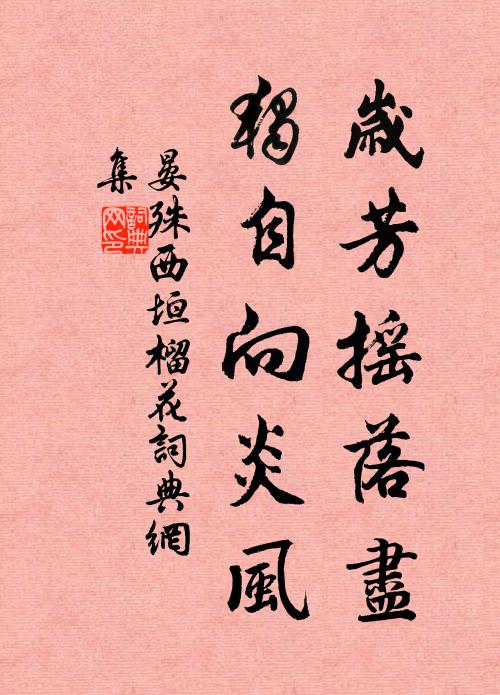 歲芳搖落盡
獨自向炎風
晏殊西垣榴花詞典網
集
詞典
网印